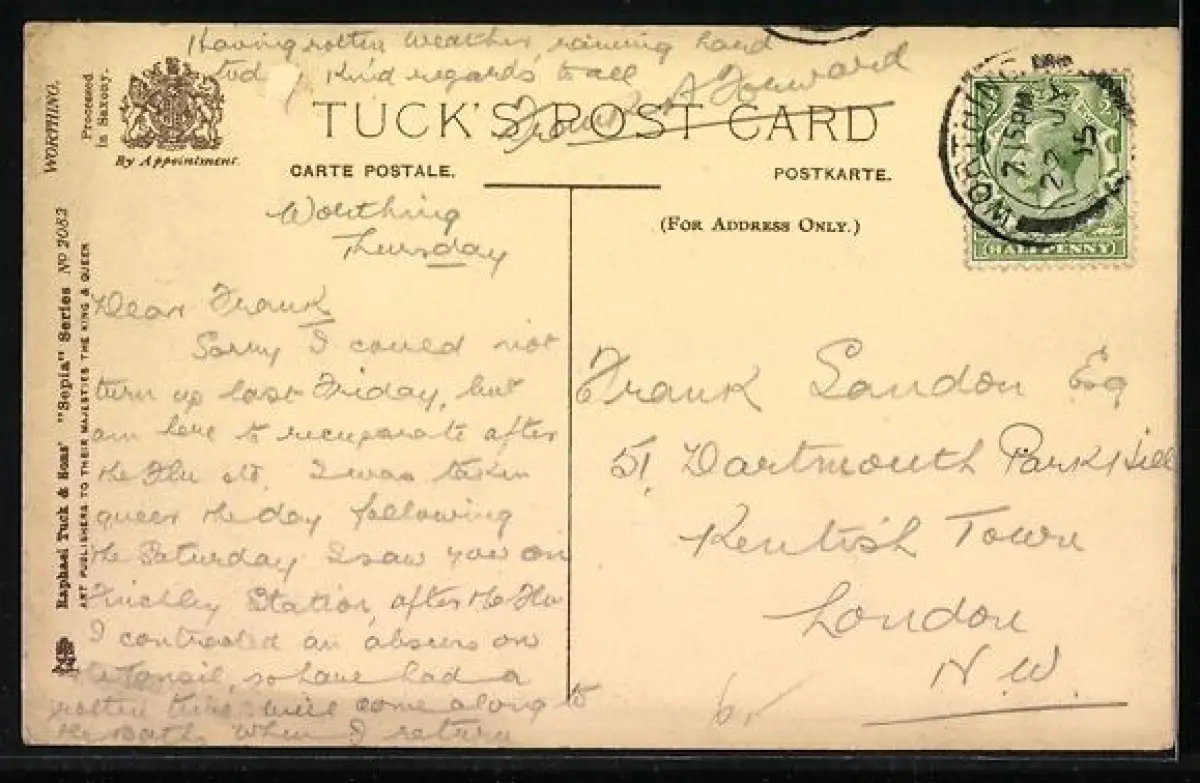 Having rotten weather, raining hard
today Kind regards to all
From A Howard
TUCK'S POST CARD
CARTE POSTALE.
POSTKARTE.
(FOR ADDRESS ONLY.)
By Appointment.
WORTHING.
Processed
in Saxony.
Raphael Tuck & Sons' "Sepia" Series Nº 2082
ART PUBLISHERS TO THEIR MAJESTIES THE KING & QUEEN
WORTHING
7.15 PM
22 JA
15
HALFPENNY
Worthing
Thursday
Dear Frank
Sorry I could not
turn up last Friday, but
am here to recuperate after
the Flu etc. I was taken
queer the day following
the Saturday I saw you on
Finchley Station, after the Flu
I contracted an abscess on
the tonsil, so have had a
rotten time will come along to
the Baths when I return
Frank Landon Esq
51, Dartmouth Park Hill
Kentish Town
London
N.W.